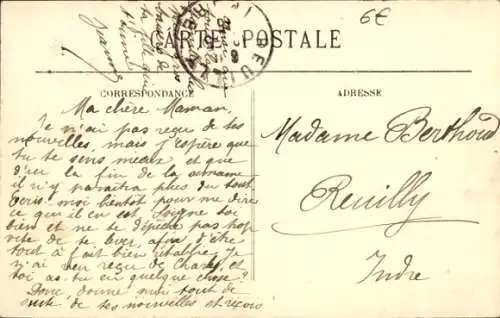 6€
CARTE POSTALE
REUILLY
CORRESPONDANCE
ADRESSE
Ma chère Maman,
Je n'ai pas reçu de tes
nouvelles, mais j'espère que
tu te sens mieux et que
d'ici la fin de la semaine
il n'y paraîtra plus du tout.
Ecris-moi bientôt pour me dire
ce qu'il en est. Soigne-toi
bien et ne te dépêche pas trop
vite de te lever, afin d'être
tout à fait bien rétablie. Je
n'ai rien reçu de Charly, et
toi as-tu eu quelque chose?
Donc, donne-moi tout de
suite de tes nouvelles et reçois
Madame Berthoud
Reuilly
Indre